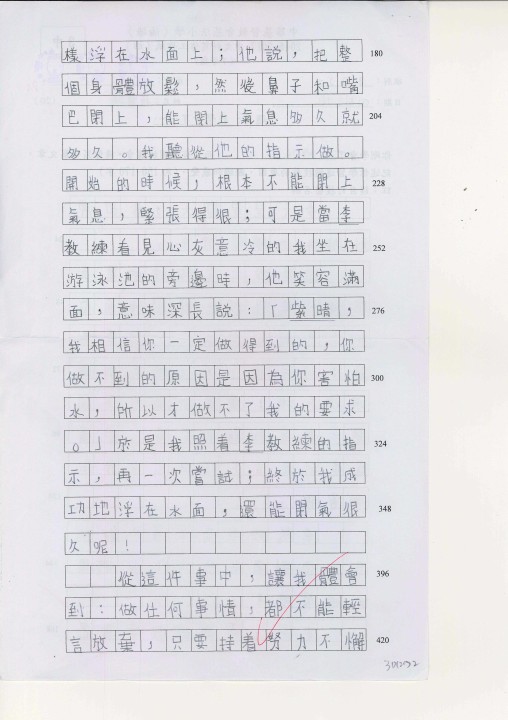 樣浮在水面上；他說，把整 180
個身體放鬆，然後鼻子和嘴
巴閉上，能閉上氣息多久就 204
多久。我聽從他的指示做。
開始的時候，根本不能閉上 228
氣息，緊張得很；可是當李
教練看見心灰意冷的我坐在 252
游泳池的旁邊時，他笑容滿
面，意味深長說：「紫晴， 276
我相信你一定做得到的，你
做不到的原因是因為你害怕 300
水，所以才做不了我的要求
。」於是我照着李教練的指 324
示，再一次嘗試；終於我成
功地浮在水面，還能閉氣很 348
久呢！
從這件事中，讓我體會 396
到：做任何事情，都不能輕
言放棄，只要持着努力不懈 420